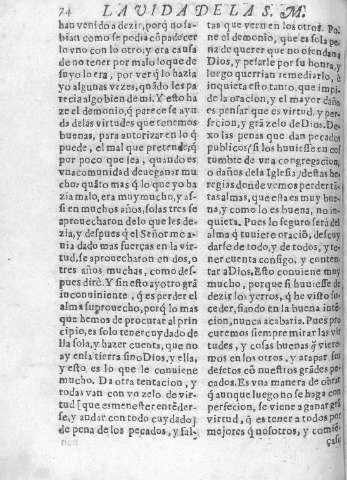 74 LA VIDA DE LA S. M.
han venido a dezir, porq̃ no sa-
bian como se podia cõpadecer
lo vno con lo otro; y era causa
de no tener por malo loque de
suyo lo era, por ver q̃ lo hazia
yo algunas vezes, quãdo les pa
recia algo bien de mi. Y esto ha
ze el demonio, q̃ parece se ayu
da delas virtudes que tenemos
buenas, para autorizar en lo q̃
puede, el mal que pretende, q̃
por poco que sea, quando es
vna comunidad deue ganar mu
cho: quãto mas q̃ lo que yo ha
zia malo, era muy mucho, y as-
si en muchos años, solas tres se
aprouecharon delo que les de-
zia, y despues q̃ el Señor me a-
uia dado mas fuerças en la vir-
tud, se aprouecharon en dos, o
tres años muchas, como des-
pues dirè. Y sin esto ay otro grã
inconuiniente, q̃ es perder el
alma su prouecho, porq̃ lo mas
que hemos de procurar al prin
cipio, es solo tener cuydado de
lla sola, y hazer cuenta, que no
ay en la tierra sino Dios, y ella,
y esto es lo que le conuiene
mucho. Da otra tentacion, y
todas van con vn zelo de vir-
tud [que es menester entẽder-
se, y andar con todo cuydado]
de pena de los pecados, y fal-
tas que vern en los otros. Po-
ne el demonio, que es sola pe-
na de querer que no ofendan a
Dios, y pesarle por su honra, y
luego querrian remediarlo, è
inquieta esto tanto, que impi-
de la oracion, y el mayor daño
es pensar que es virtud, y per-
fecion, y grã zelo de Dios. De-
xo las penas que dan pecados
publicos (si los huuiesse en cos
tumbre de vna congregacion,
o daños dela Iglesia) destas he-
regias donde vemos perder tã-
tas almas, que esta es muy bue-
na, y como lo es buena, no in-
quieta. Pues lo seguro serà del
alma q̃ tuuiere oraciõ, descuy-
darse de todo, y de todos, y te-
ner cuenta consigo, y conten-
tar a Dios. Esto conuiene muy
mucho, porque si huuiesse de
dezir los yerros, q̃ he visto su-
ceder, fiando en la buena inte
cion, nunca acabaria. Pues pro
curemos siempre mirar las vir
tudes, y cosas buenas q̃ viere-
mos en los otros, y atapar sus
defetos cõ nuestros grãdes pe-
cados. Es vna manera de obrar
q̃ aunque luego no se haga con
perfecion, se viene a ganar grã
virtud, q̃ es tener a todos por
mejores q̃ nosotros, y comiẽ-
çase